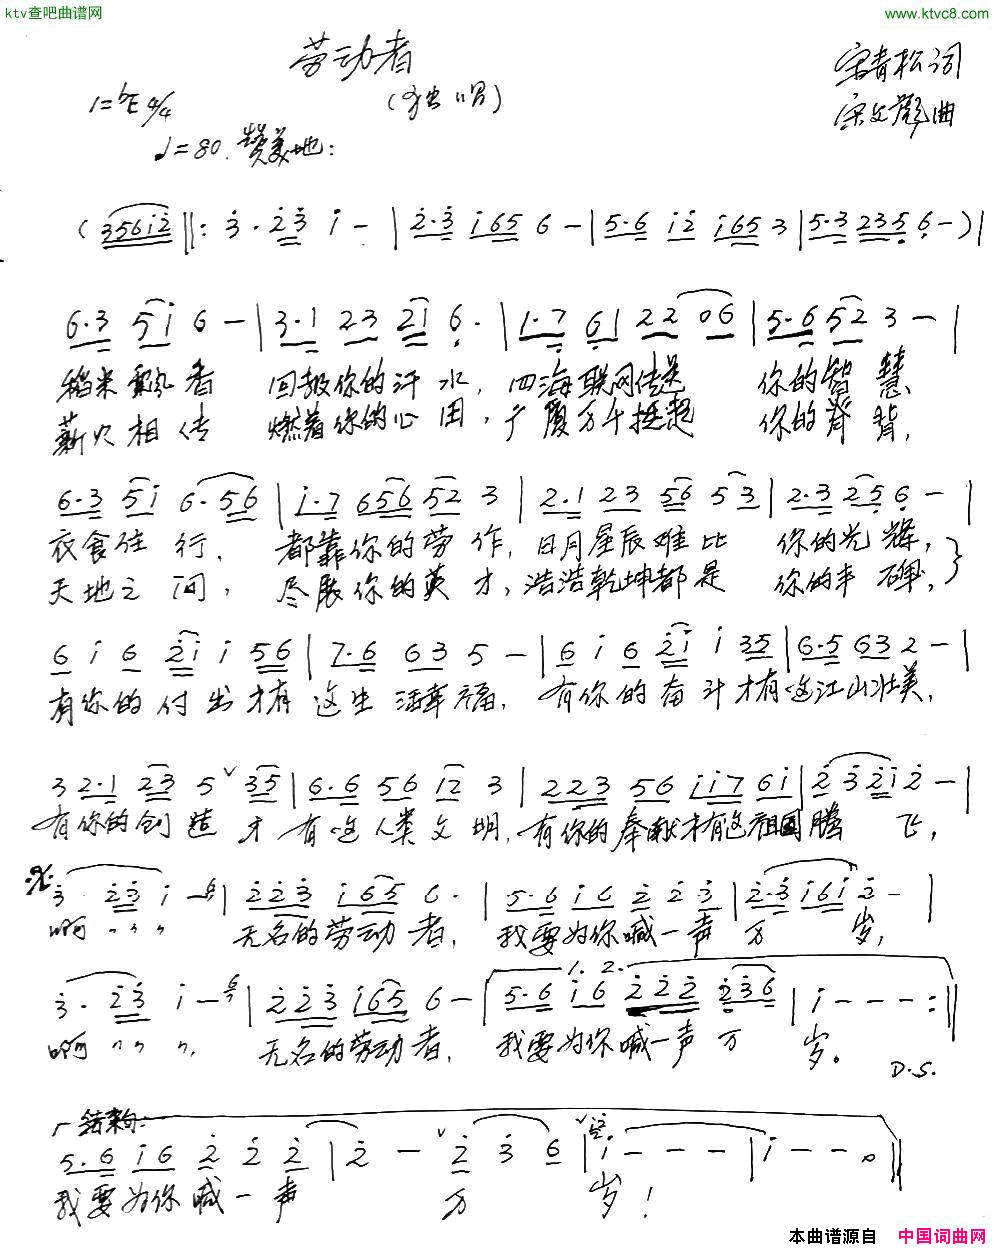 ktv查吧曲谱网
www.ktvc8.com
劳动者
(独唱)
宋青松词
1=♭E 4/4
宋文彪曲
♩=80. 赞美地:
(3561̇2̇ ‖: 3̇ · 2̇3̇ 1̇ - | 2̇·3̇ 1̇65 6 - | 5·6 1̇2̇ 1̇65 3 | 5·3 235̣ 6̣ -) |
6·3 51̇ 6 - | 3·1 23 21 6̣ · | 1·7̣ 6̣1 22 06̣ | 5̣·6̣ 52 3 - |
稻米飘香 回报你的汗水, 四海联网传递 你的智慧、
薪火相传 燃着你的心田, 广厦万千挺起 你的脊背,
6·3 51̇ 6·56 | 1̇·7 656 52 3 | 2·1 23 56 53 | 2·3 25̣ 6̣ - |
衣食住行, 都靠你的劳作, 日月星辰难比 你的光辉,
天地之间, 尽展你的英才, 浩浩乾坤都是 你的丰碑,}
6 1̇ 6 2̇1̇ 1̇ 56 | 7·6 63 5 - | 6 1̇ 6 2̇1̇ 1̇ 35 | 6·5 63 2 - |
有你的付出才有这生活幸福, 有你的奋斗才有这江山壮美,
3 2·1 23 5 ˅ 35 | 6·6 56 12 3 | 223 56 1̇1̇7 61̇ | 2̇ 3̇ 2̇1̇ 2̇ - |
有你的创造 才有这人类文明, 有你的奉献才有这祖国腾飞,
3̇ 2̇3̇ 1̇ - | 2̇2̇3̇ 1̇65 6 · | 5·6 1̇6 2̇ 2̇ 3̇ | 2̇·3̇ 1̇61̇ 3̇ - |
啊 无名的劳动者, 我要为你喊一声万岁,
1. 2.
3̇ · 2̇3̇ 1̇ - | 2̇2̇3̇ 1̇65 6 - | 5·6 1̇6 2̇2̇2̇ 2̇36 | 1̇ - - - :‖
啊 无名的劳动者, 我要为你喊一声万岁。
D.S.
结束句:
5·6 1̇6 2̇ 2̇ 2̇ | 2̇ - ˅ 2̇ 3̇ 6 | ˅ 1̇ - - - | 1̇ - - 0 ‖
我要为你喊一声 万 岁!
本曲谱源自 中国词曲网